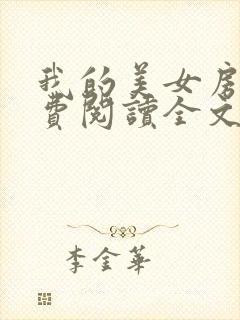 我的美女房
費閱讀全文
李金華